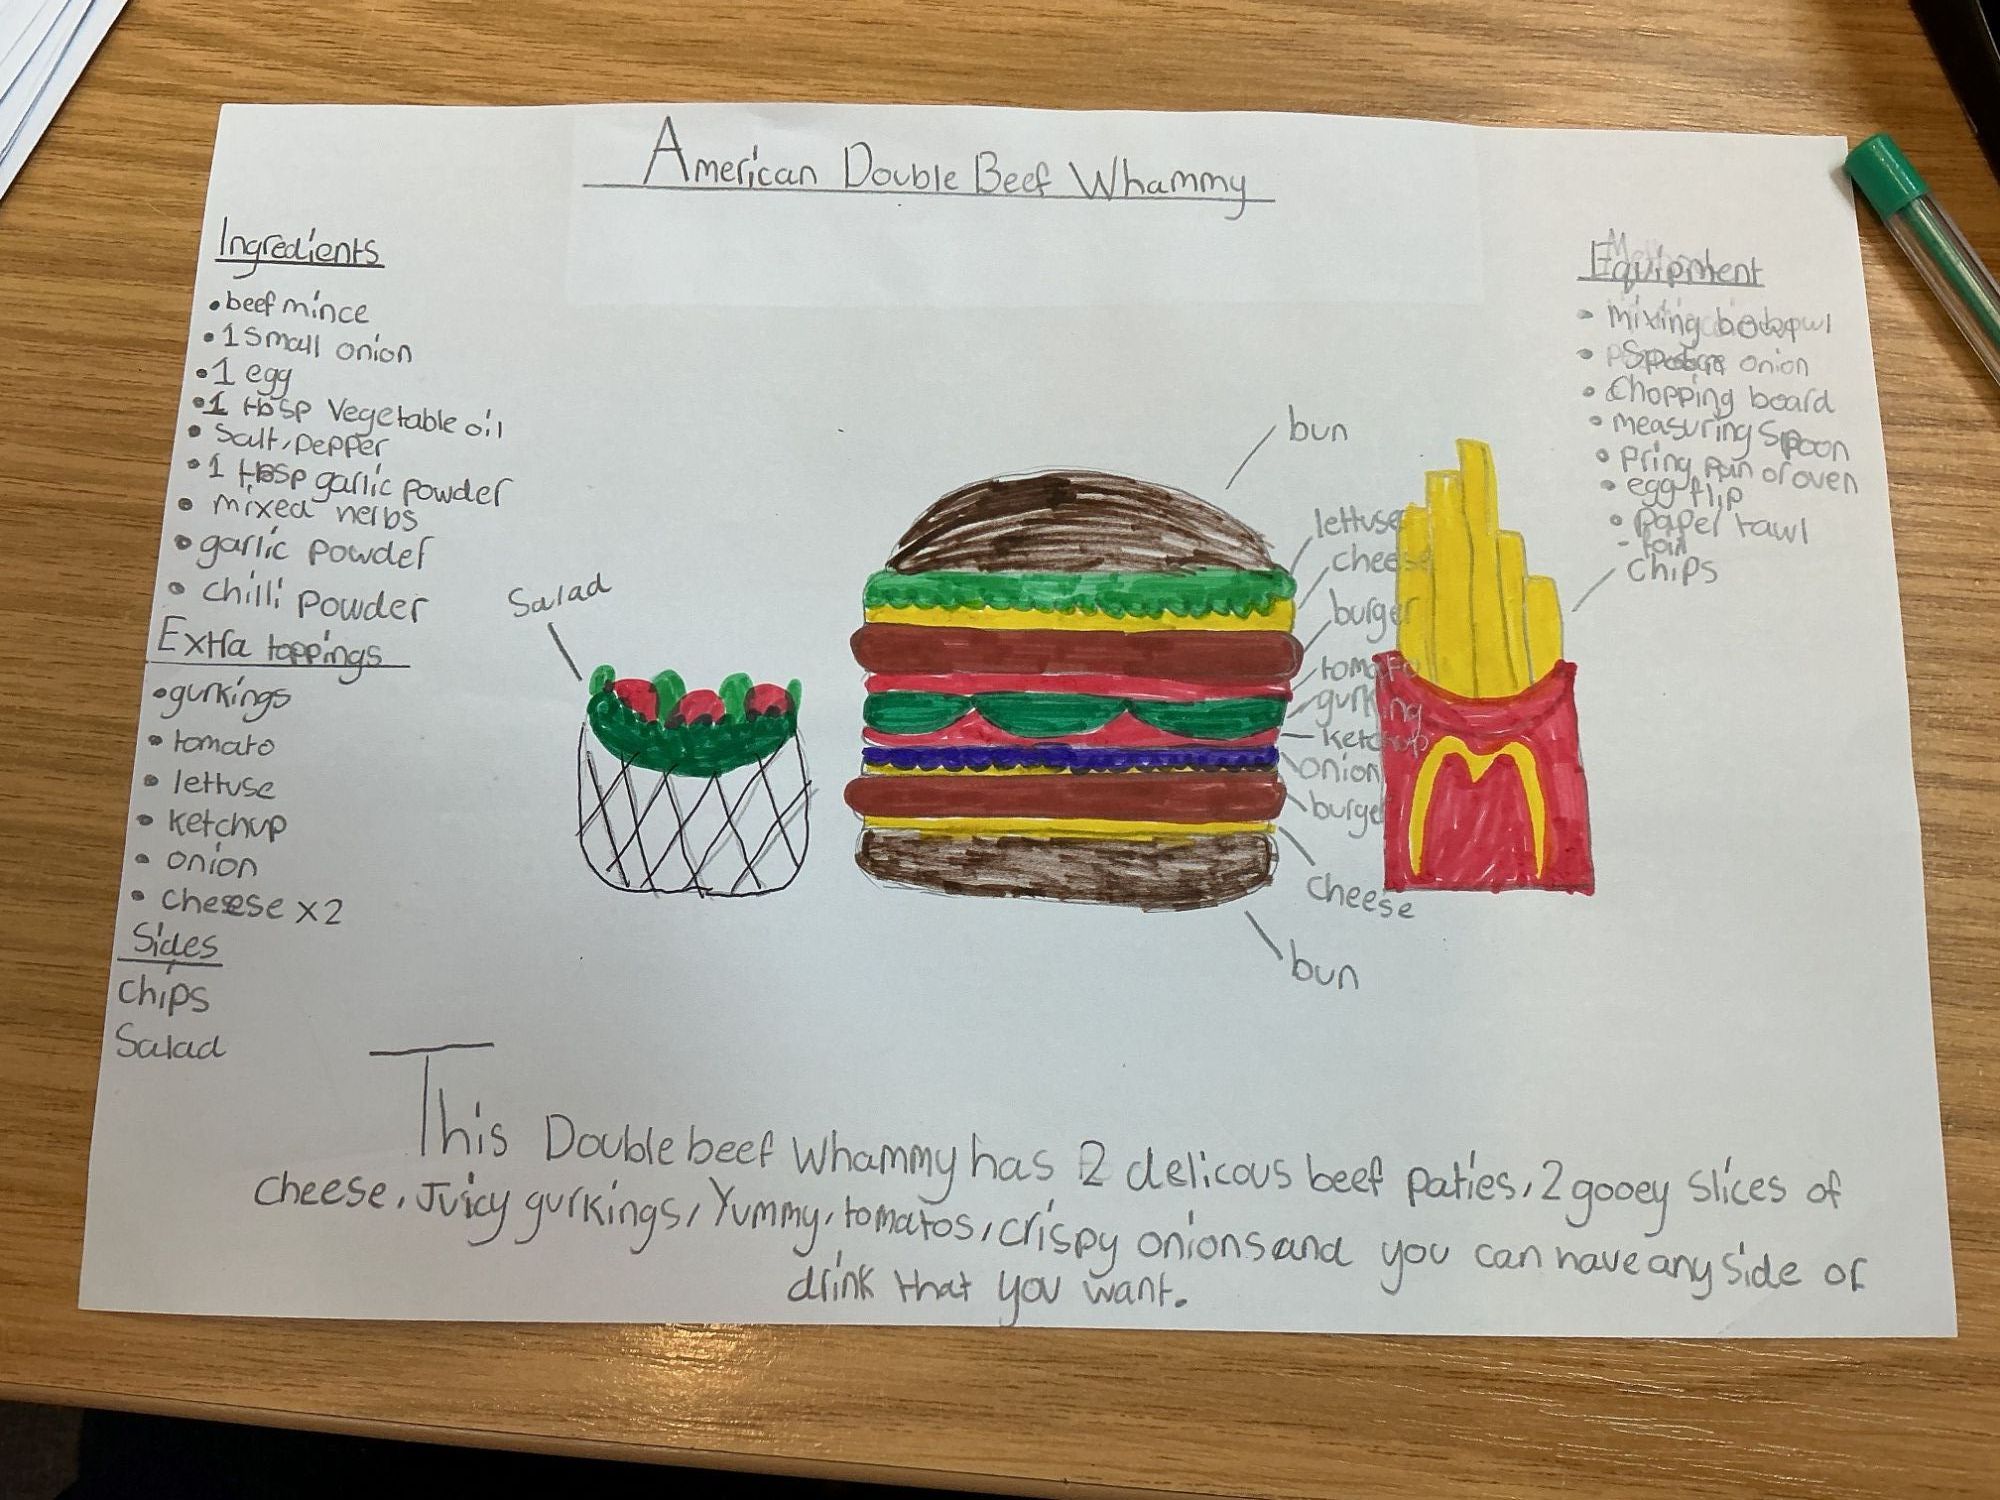 American Double Beef Whammy
Ingredients
• beef mince
• 1 small onion
• 1 egg
• 1 tbsp vegetable oil
• salt, pepper
• 1 tbsp garlic powder
• mixed herbs
• garlic powder
• chilli powder
Extra toppings
• gurkings
• tomato
• lettuse
• ketchup
• onion
• cheese x2
Sides
chips
Salad
Salad
bun
lettuse
cheese
burger
tomato
gurking
ketchup
onion
burger
cheese
bun
Equipment
• mixing bowl
• onion
• chopping board
• measuring spoon
• pring pan or oven
• egg flip
• paper tawl
chips
This Double beef whammy has 2 delicous beef paties, 2 gooey slices of
cheese, Juicy gurkings, Yummy, tomatos, crispy onions and you can have any side or
drink that you want.